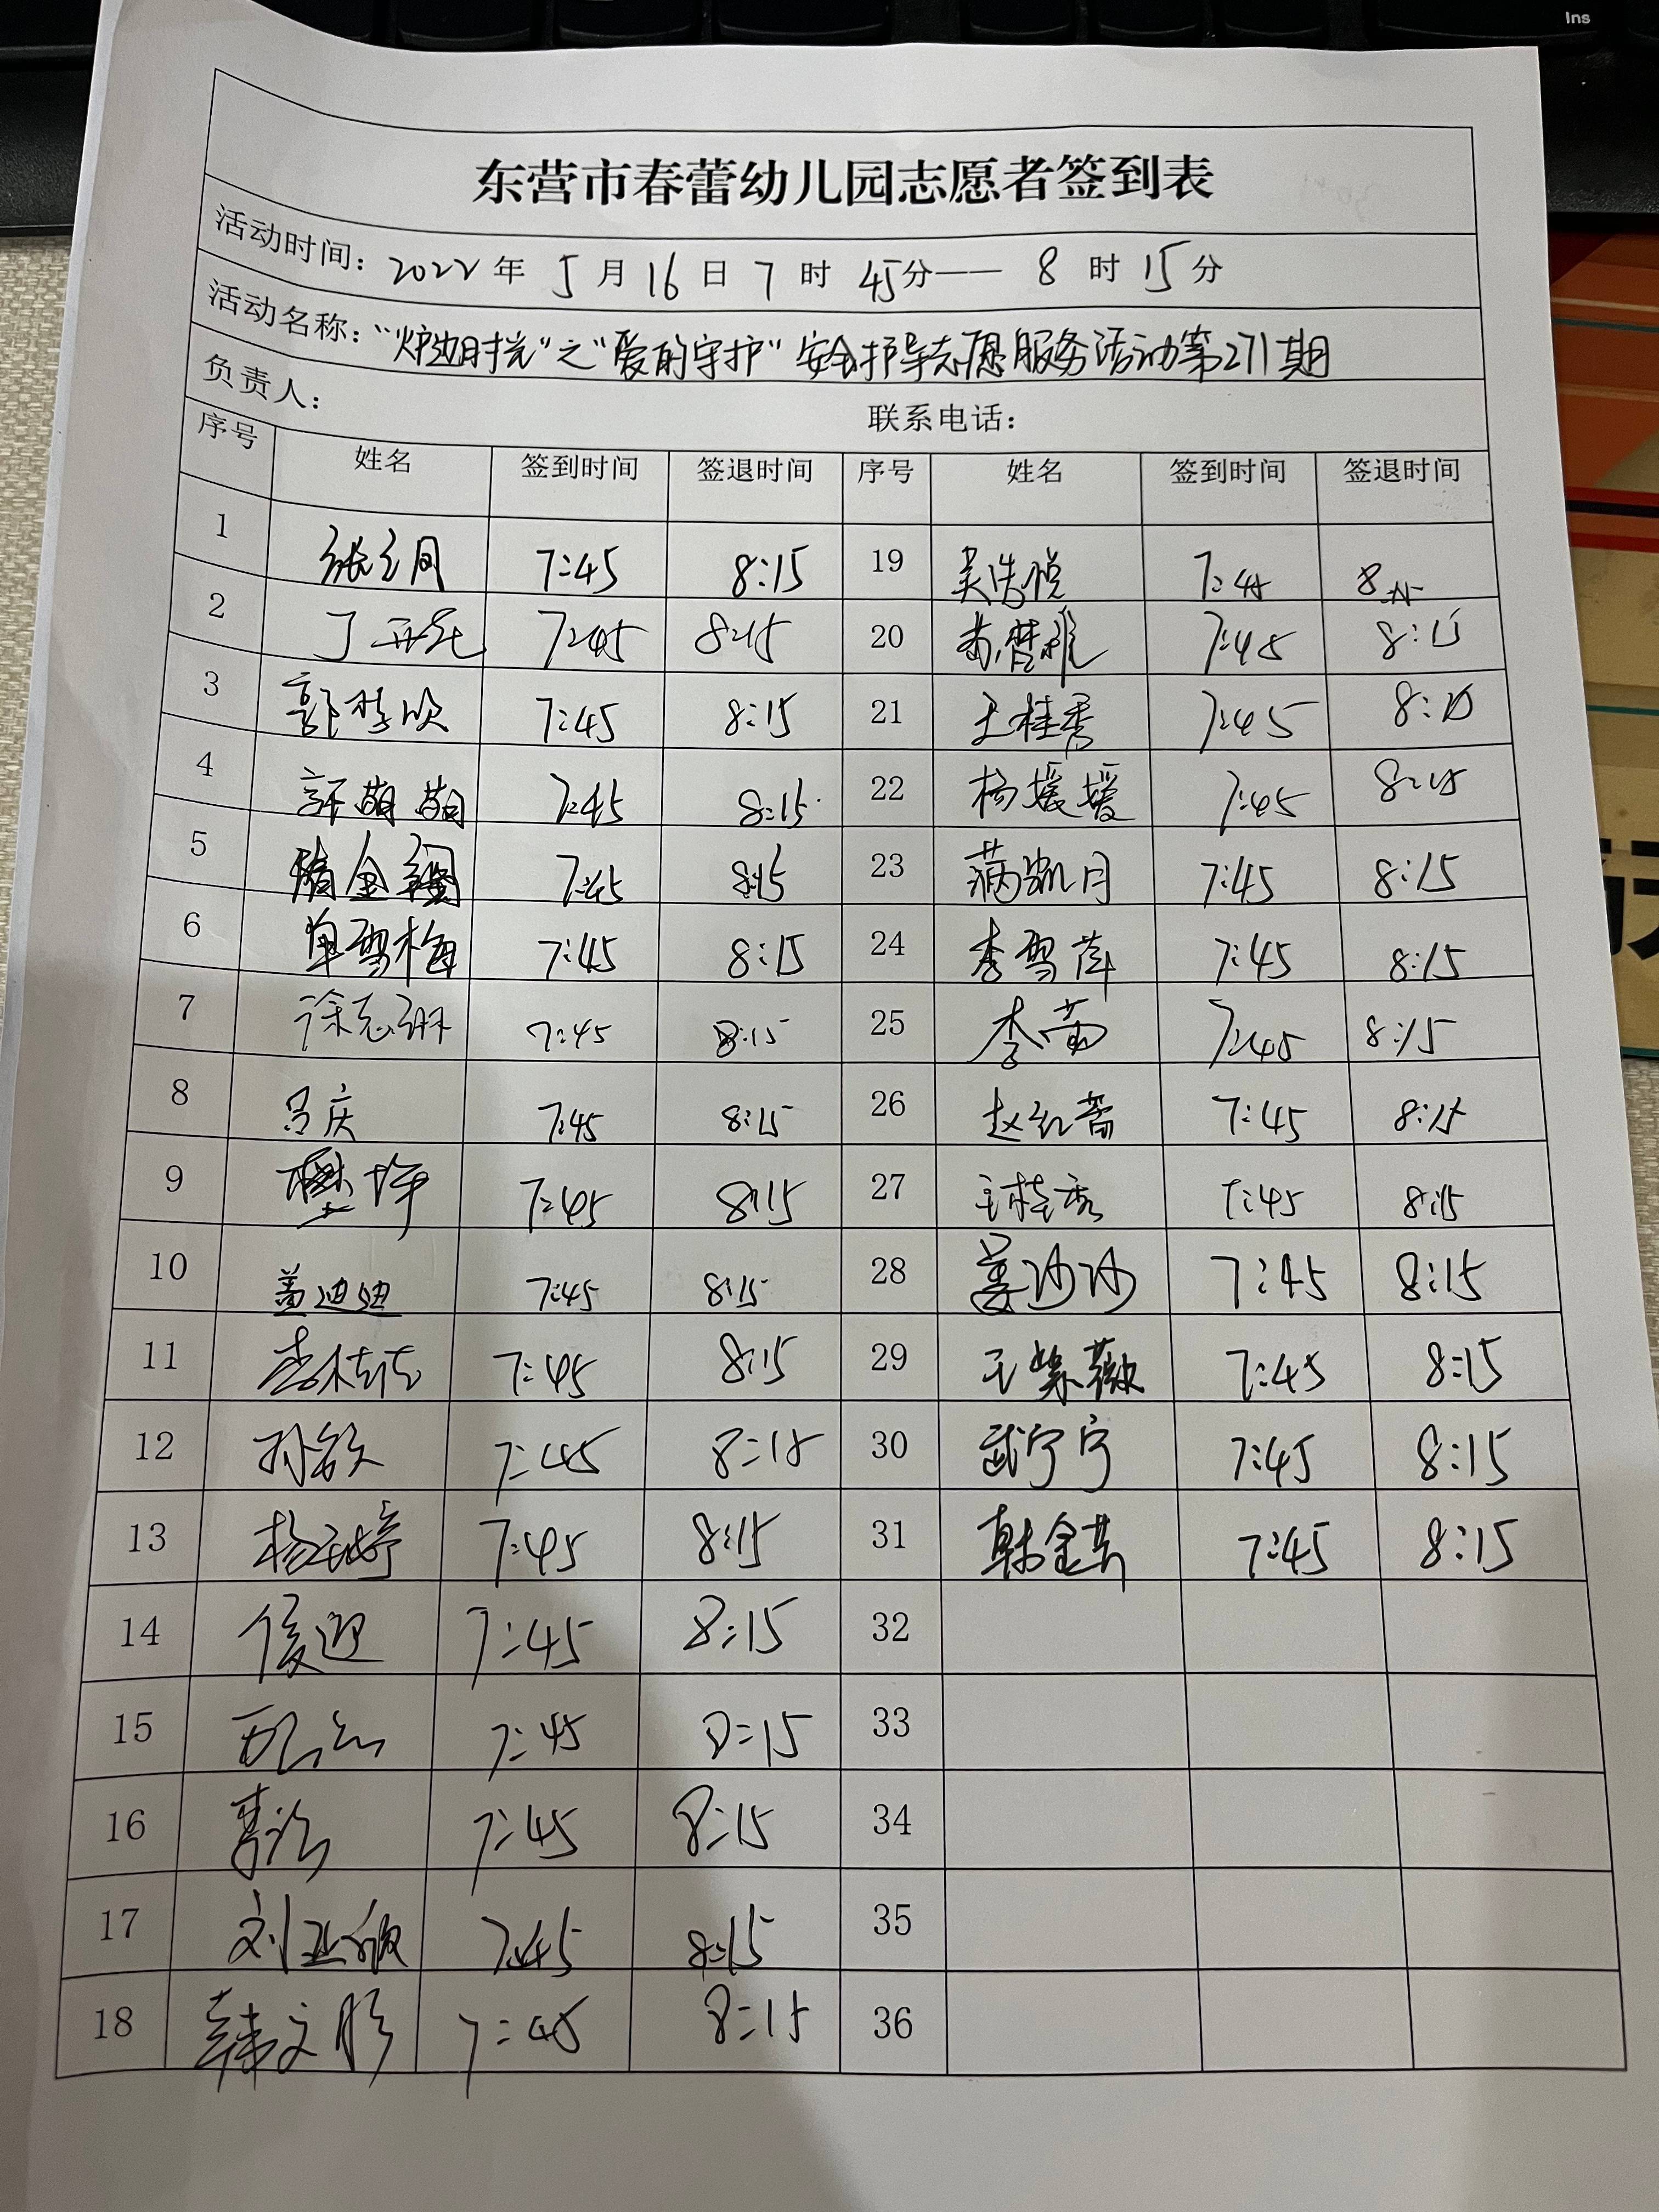 Ins
东营市春蕾幼儿园志愿者签到表
活动时间：2022年5月16日7时45分——8时15分
活动名称：“炉边时光”之“爱的守护”安全护导志愿服务活动第271期
负责人： 联系电话：
序号 姓名 签到时间 签退时间 序号 姓名 签到时间 签退时间
1 7:45 8:15 19 吴浩悦 7:45 8:15
2 7:45 8:15 20 7:45 8:15
3 7:45 8:15 21 王桂香 7:45 8:15
4 许萌萌 7:45 8:15 22 杨媛媛 7:45 8:15
5 7:45 8:15 23 7:45 8:15
6 单雪梅 7:45 8:15 24 李雪萍 7:45 8:15
7 徐志琳 7:45 8:15 25 李蕾 7:45 8:15
8 吕庆 7:45 8:15 26 7:45 8:15
9 7:45 8:15 27 王桂秀 7:45 8:15
10 盖迪迪 7:45 8:15 28 姜沙沙 7:45 8:15
11 7:45 8:15 29 王紫薇 7:45 8:15
12 7:45 8:15 30 武宁宁 7:45 8:15
13 7:45 8:15 31 7:45 8:15
14 侯迎 7:45 8:15 32
15 7:45 8:15 33
16 7:45 8:15 34
17 7:45 8:15 35
18 韩文彤 7:45 8:15 36